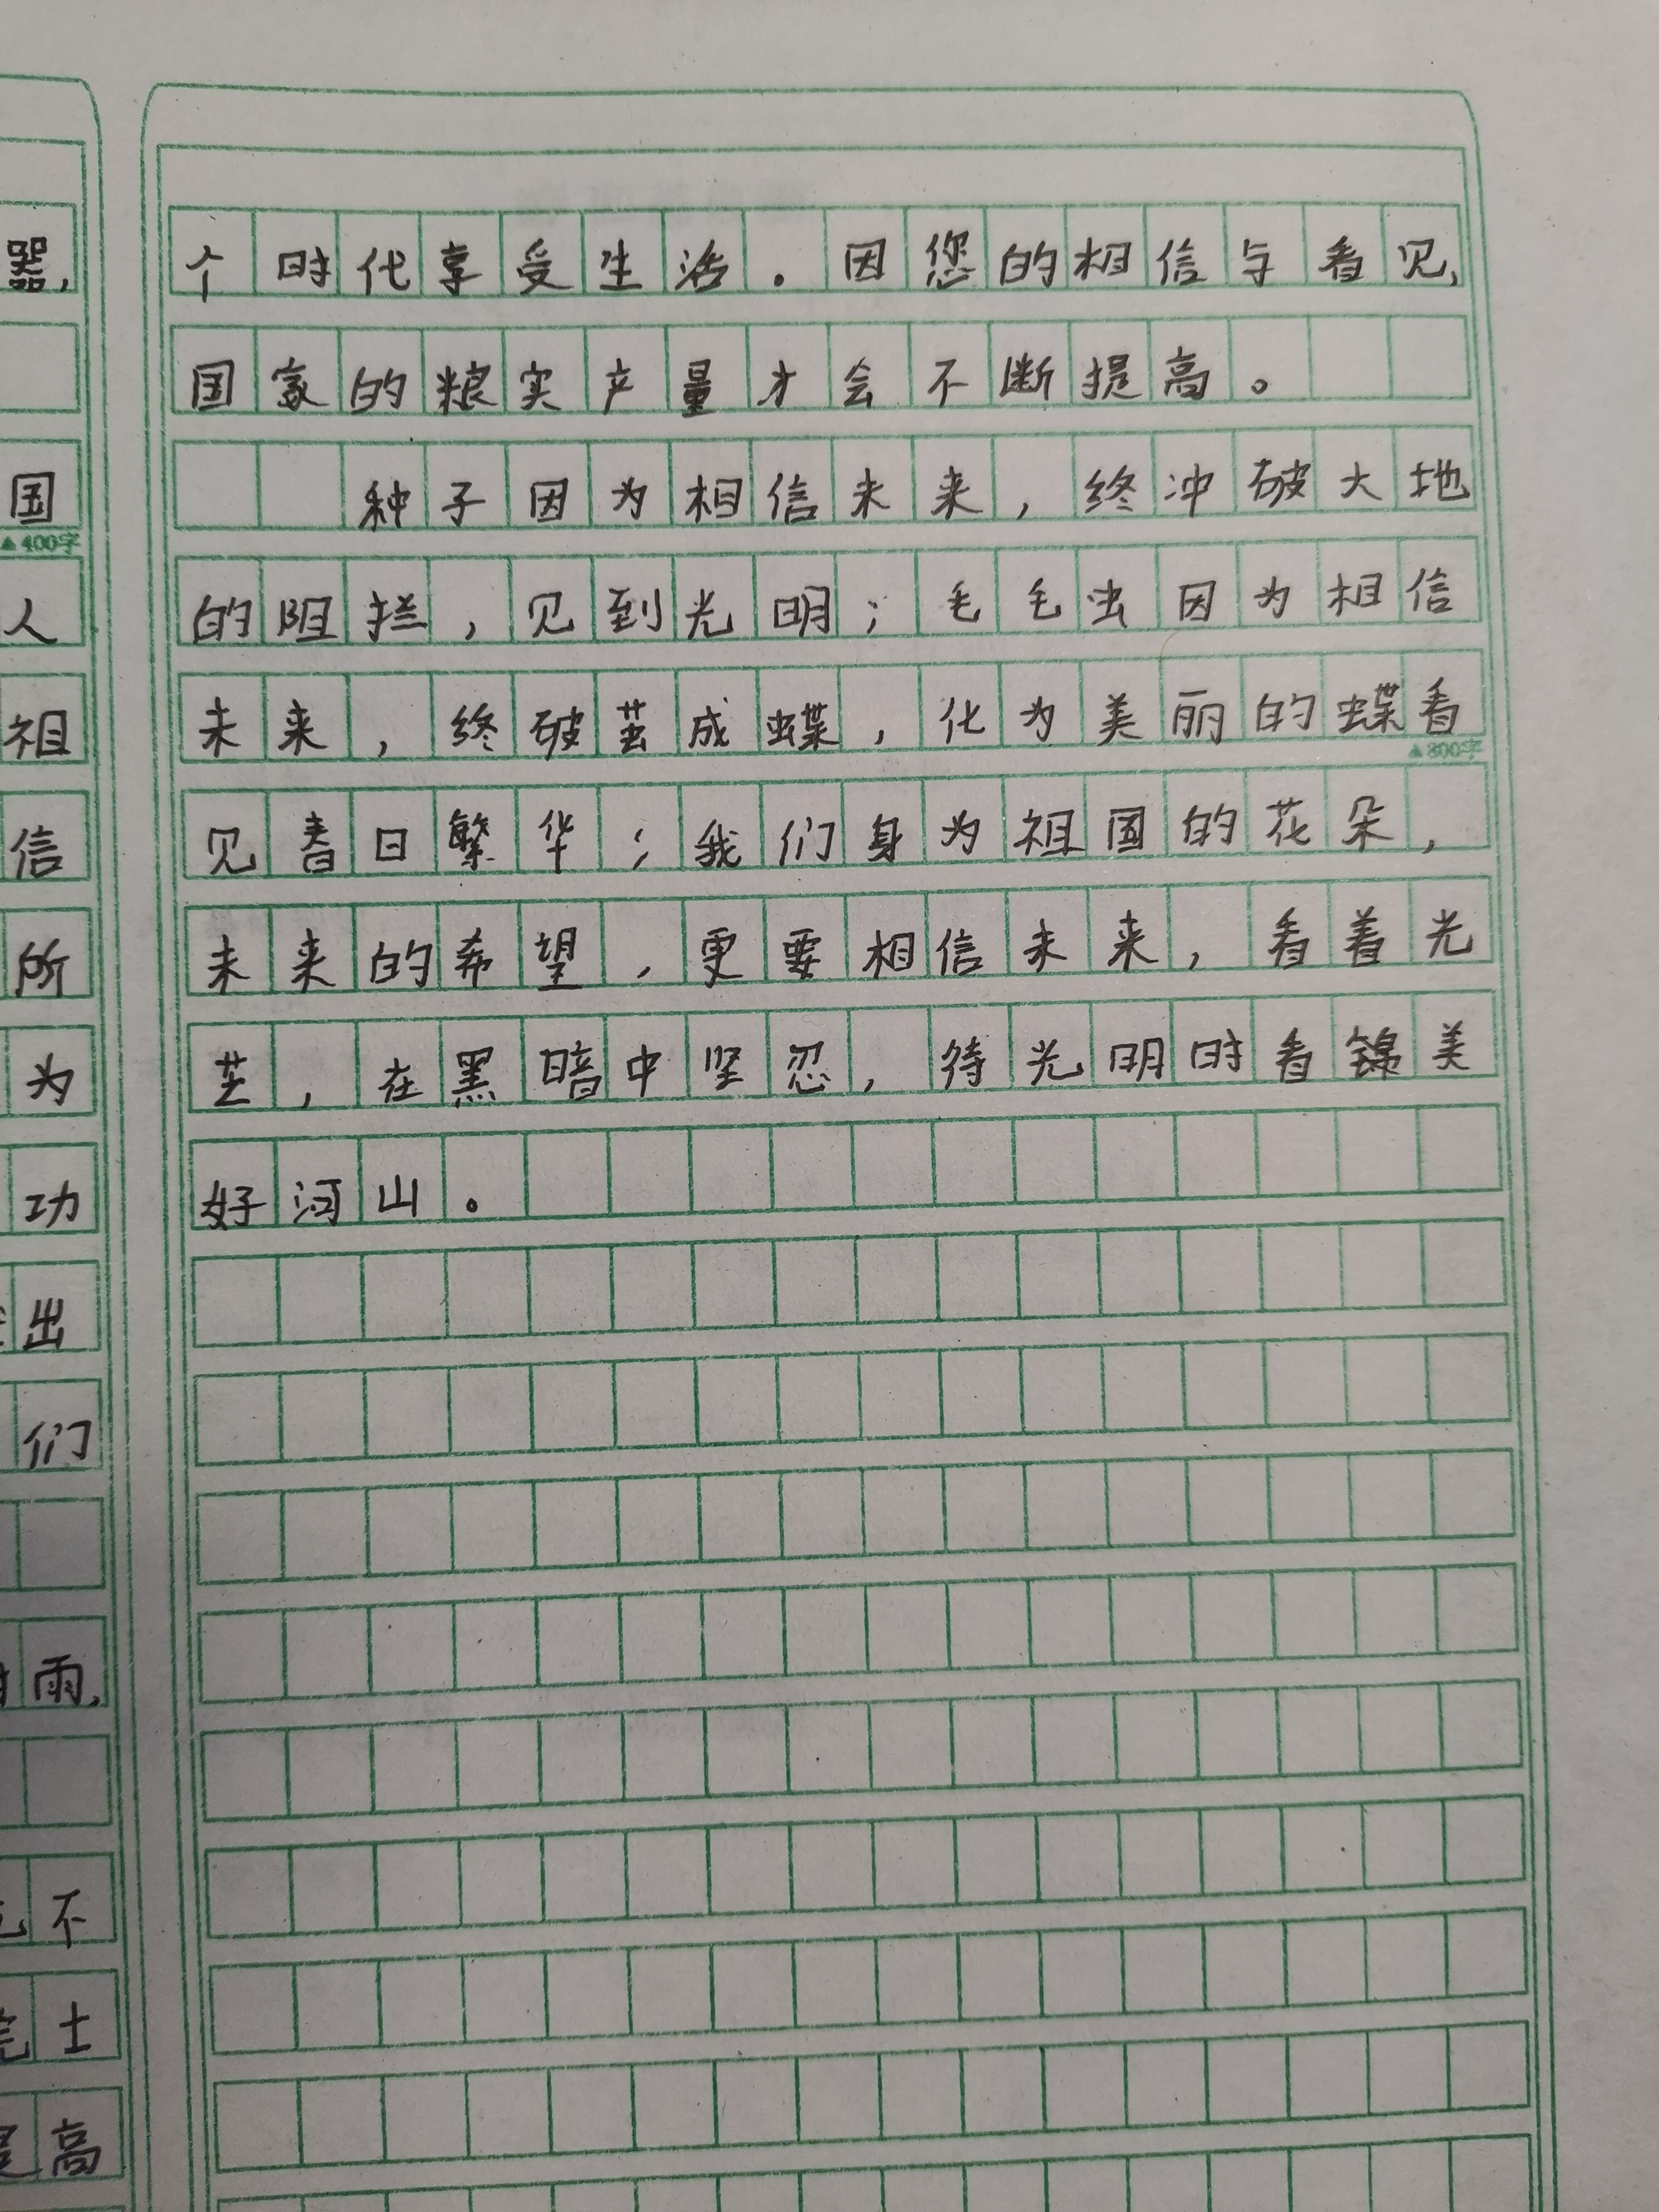 器,
国
▲400字
人
祖
信
所
为
功
出
们
雨,
不
士
高
个时代享受生活。因您的相信与看见,
国家的粮实产量才会不断提高。
种子因为相信未来，终冲破大地
的阻拦，见到光明；毛毛虫因为相信
未来，终破茧成蝶，化为美丽的蝶看
▲800字
见春日繁华；我们身为祖国的花朵，
未来的希望，更要相信未来，看着光
芒，在黑暗中坚忍，待光明时看锦美
好河山。